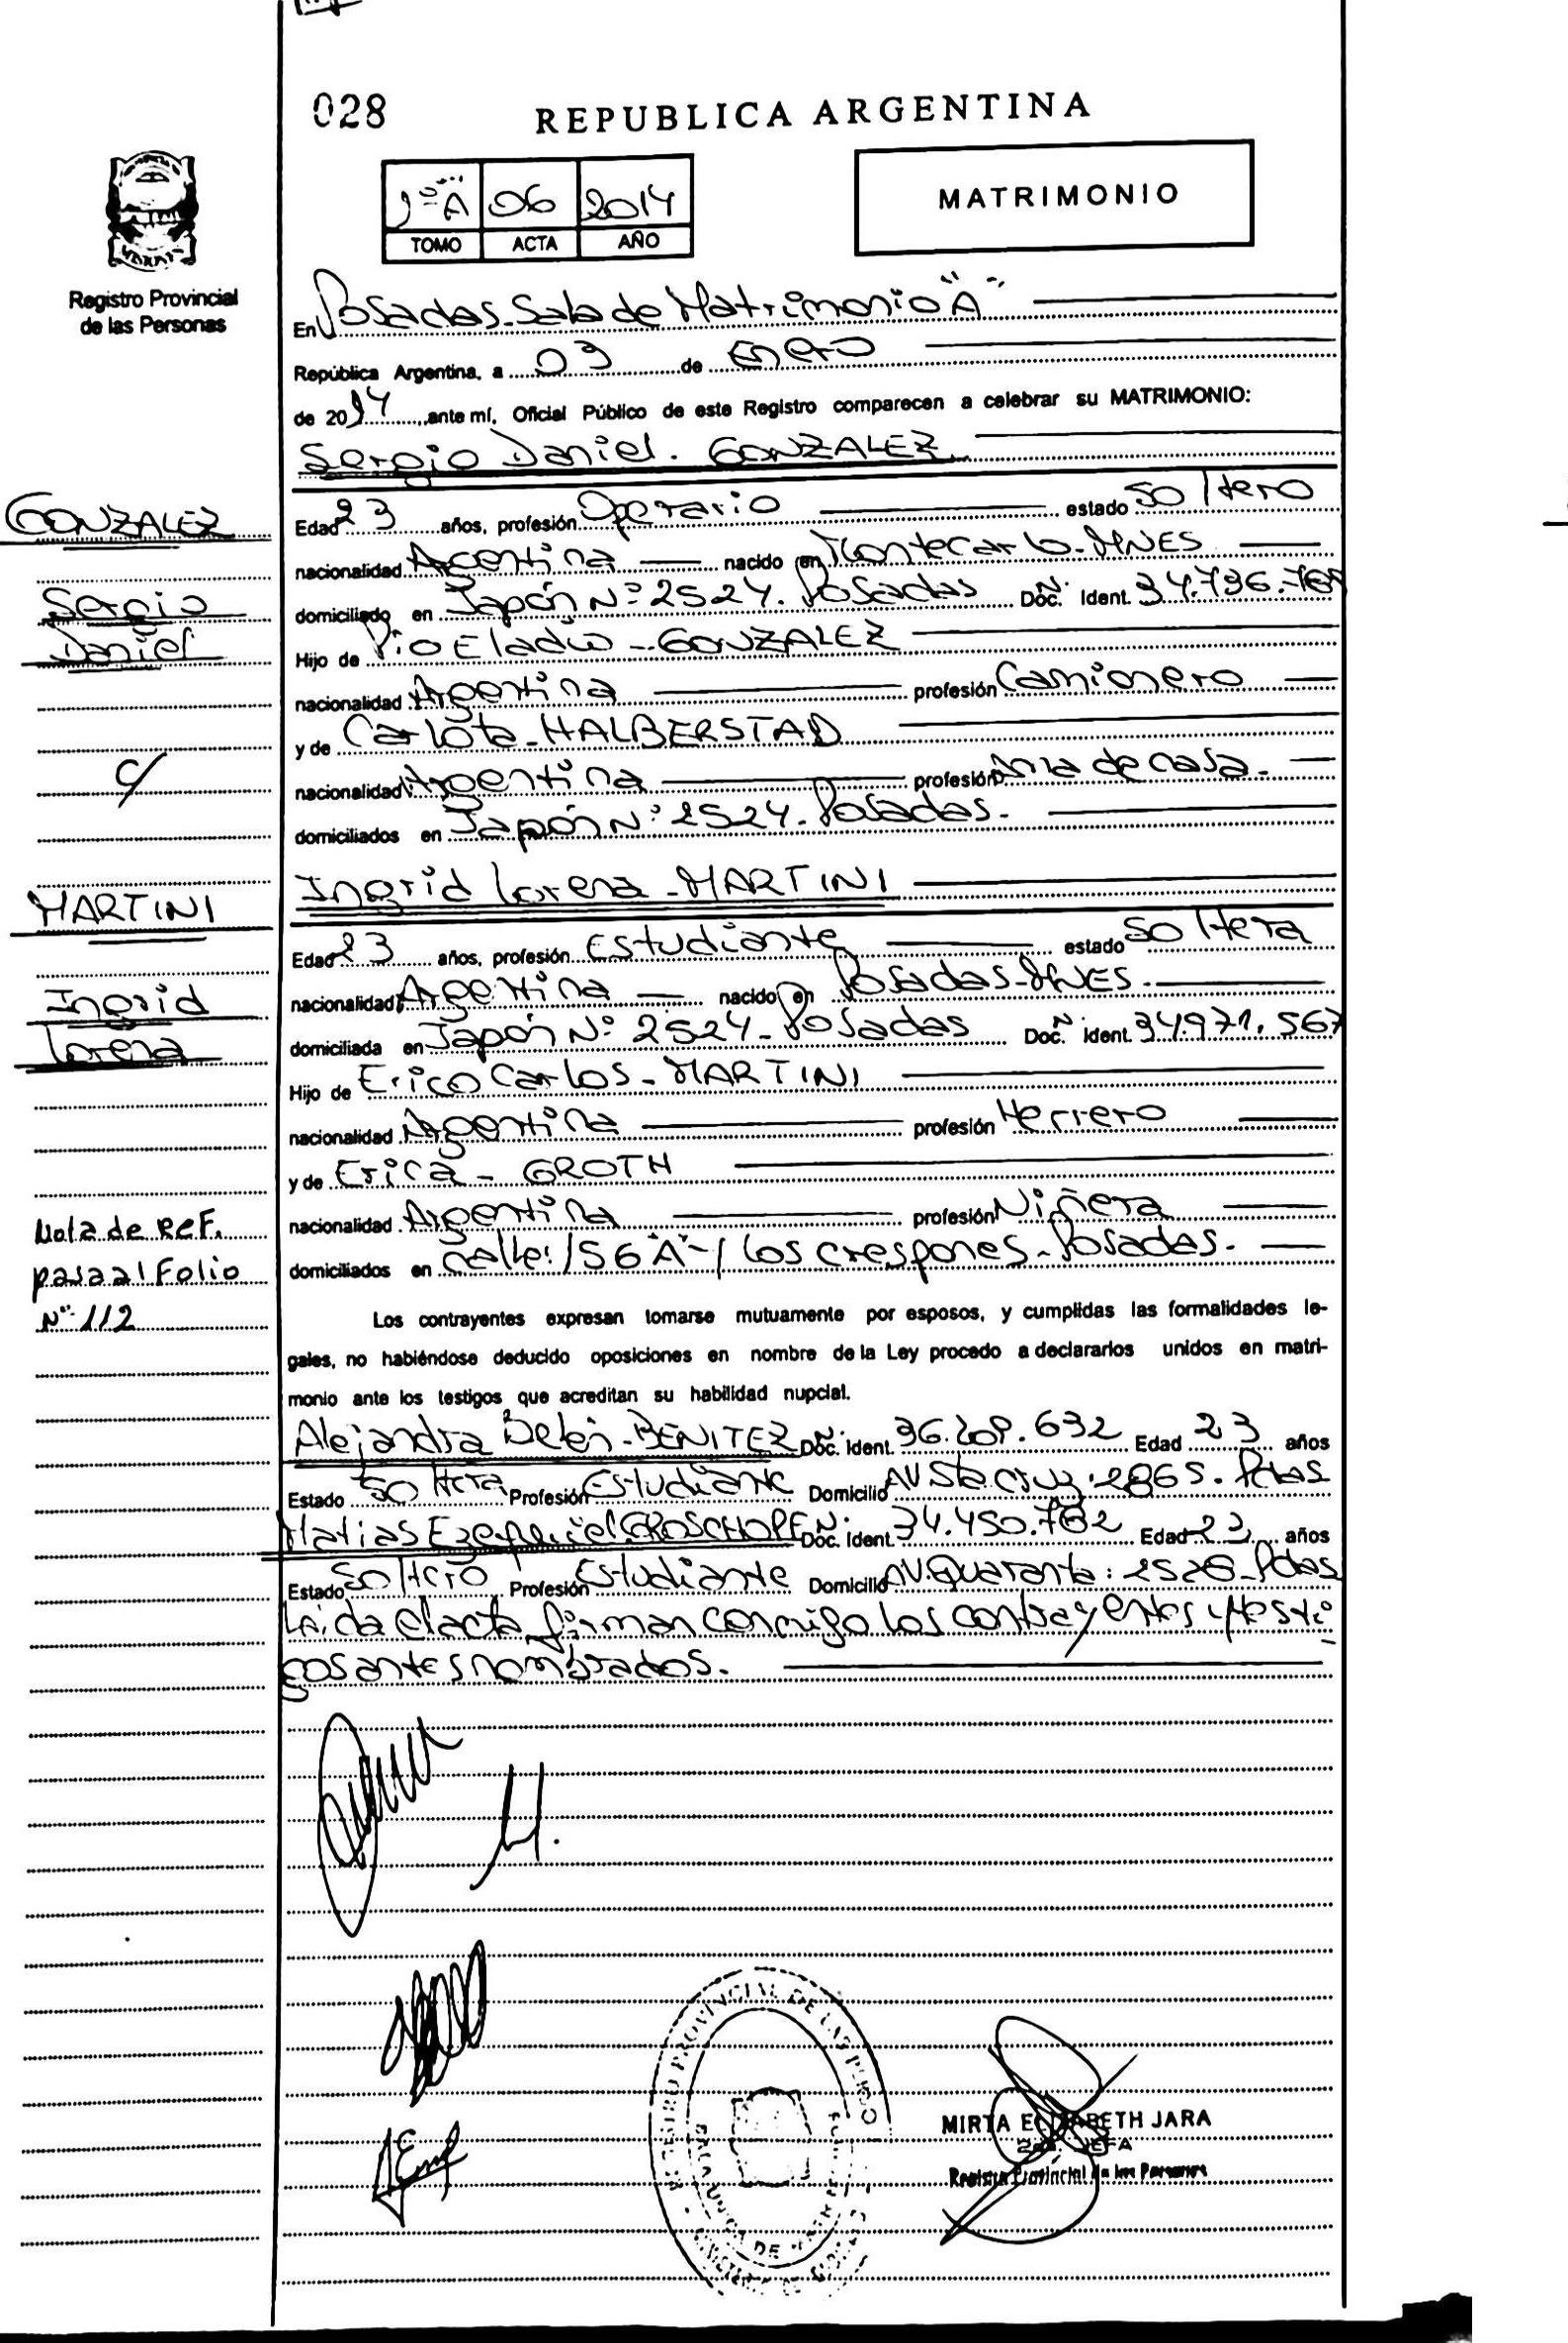 028
REPUBLICA ARGENTINA
1º "A" 06 2014
TOMO ACTA AÑO
MATRIMONIO
Registro Provincial
de las Personas
En Posadas. Sala de Matrimonio "A"
República Argentina, a 03 de Enero
de 2014, ante mí, Oficial Público de este Registro comparecen a celebrar su MATRIMONIO:
Sergio Daniel. GONZALEZ
GONZALEZ
Sergio
Daniel
c/
MARTINI
Ingrid
Lorena
Nota de Ref.
pasa al Folio
Nº 112
Edad 23 años, profesión Operario estado Soltero
nacionalidad Argentina nacido en Montecarlo-MNES
domiciliado en Japón Nº 2524. Posadas Doc. N. Ident. 34.736.768
Hijo de Pio Eladio - GONZALEZ
nacionalidad Argentina profesión Camionero
y de Carlota - HALBERSTAD
nacionalidad Argentina profesión Ama de casa.
domiciliados en Japón Nº 2524. Posadas.
Ingrid Lorena - MARTINI
Edad 23 años, profesión Estudiante estado Soltera
nacionalidad Argentina nacido en Posadas-MNES.
domiciliada en Japón Nº 2524. Posadas Doc. N. Ident. 34.971.567
Hijo de Erico Carlos - MARTINI
nacionalidad Argentina profesión Herrero
y de Erica - GROTH
nacionalidad Argentina profesión Niñera
domiciliados en Calle: 156 "A" - / Los crespones - Posadas.
Los contrayentes expresan tomarse mutuamente por esposos, y cumplidas las formalidades le-
gales, no habiéndose deducido oposiciones en nombre de la Ley procedo a declararlos unidos en matri-
monio ante los testigos que acreditan su habilidad nupcial.
Alejandra Belén - BENITEZ Doc. N. Ident. 36.409.632 Edad 23 años
Estado Soltera Profesión Estudiante Domicilio AV Sta Cruz: 2865. Pdas
Matias Ezequiel GROSCHOPF Doc. N. Ident. 34.450.782 Edad 23 años
Estado Soltero Profesión Estudiante Domicilio AV. Quaranta: 2526 - Pdas
Leída el acta, firman conmigo los contrayentes y testi-
gos antes nombrados.
REGISTRO PROVINCIAL DE LAS PERSO
MIRTA ELIZABETH JARA
2da. JEFA
Registro Provincial de las Personas